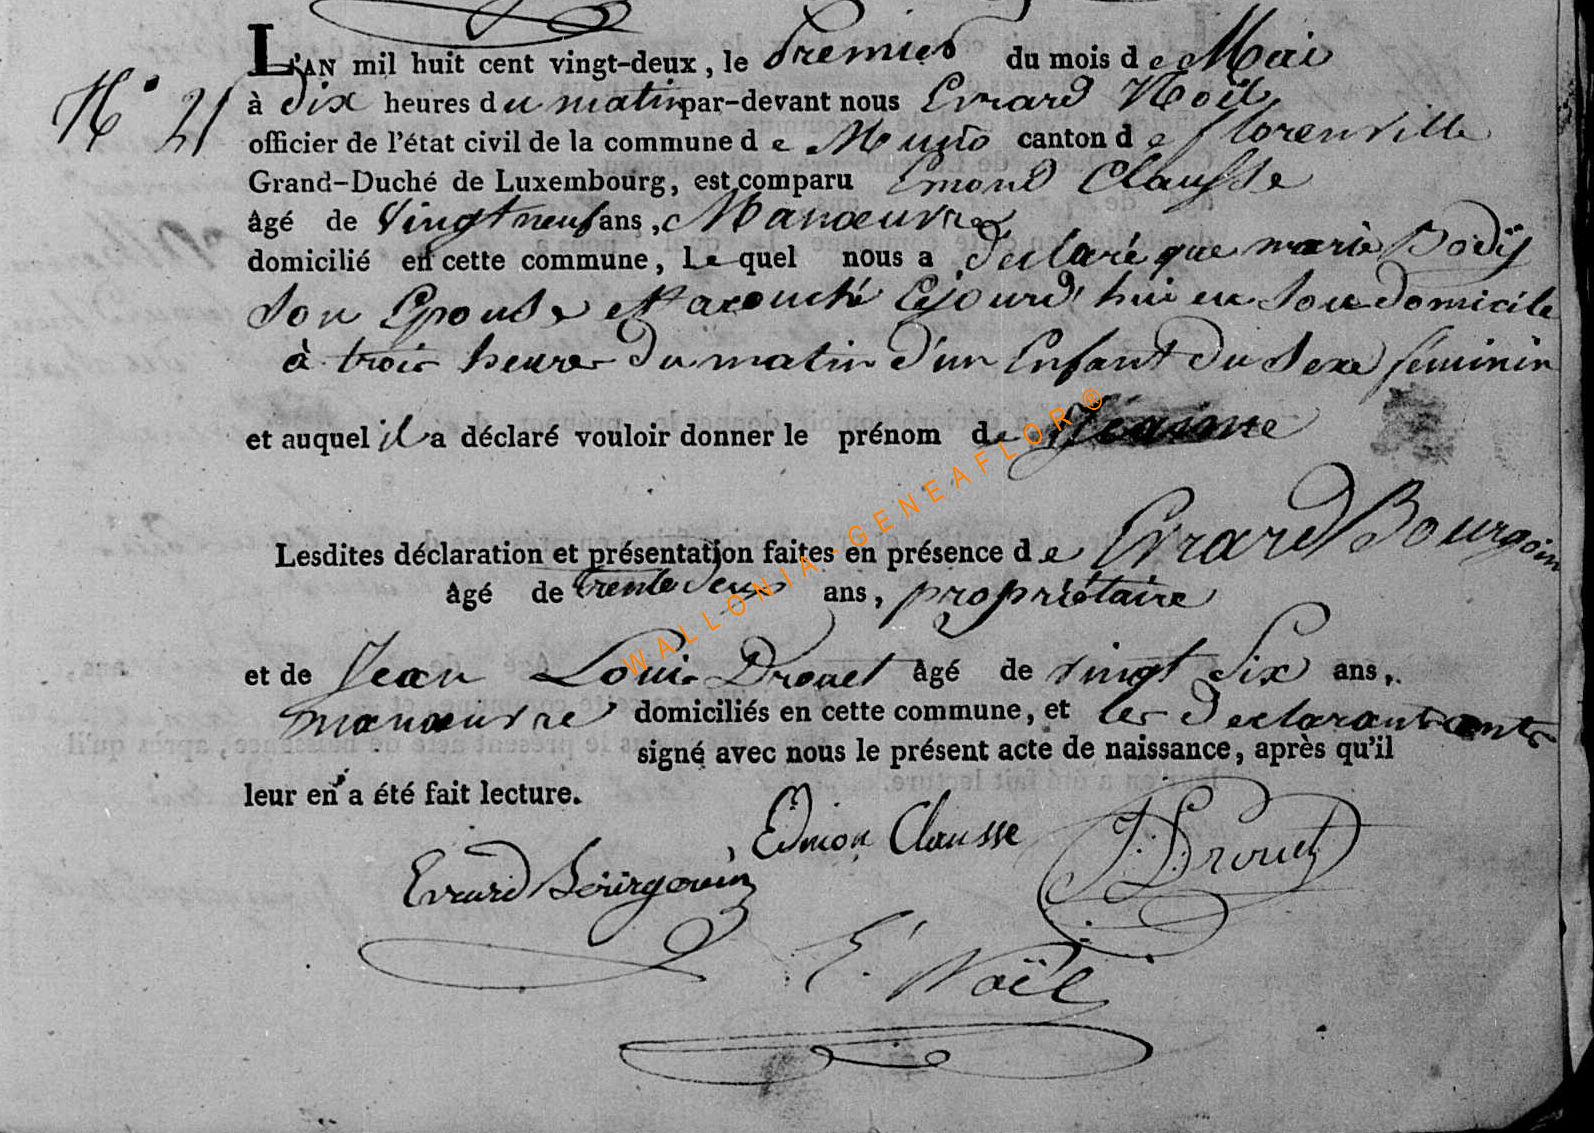 L'AN mil huit cent vingt-deux, le premier du mois de Mai
N° 21
à dix heures du matin par-devant nous Evrard Noël
officier de l'état civil de la commune de Muno canton de florenville
Grand-Duché de Luxembourg, est comparu Emond Clausse
âgé de vingt neuf ans, Manoeuvre
domicilié en cette commune, Lequel nous a declaré que marie Bodÿ
son Epouse est acouché Cejourd'hui en son domicile
à trois heures du matin d'un Enfant du sexe feminin
et auquel il a déclaré vouloir donner le prénom de Jeanne
Lesdites déclaration et présentation faites en présence de Evrard Bourgoin
âgé de trente deux ans, propriétaire
et de Jean Louis Drouet âgé de vingt six ans,
manoeuvre domiciliés en cette commune, et les declarants ont
signé avec nous le présent acte de naissance, après qu'il
leur en a été fait lecture.
Edmon Clausse
J. L. Drouet
Evrard Bourgouin
E. Noël
WALLONIA-GENEAFLOR®